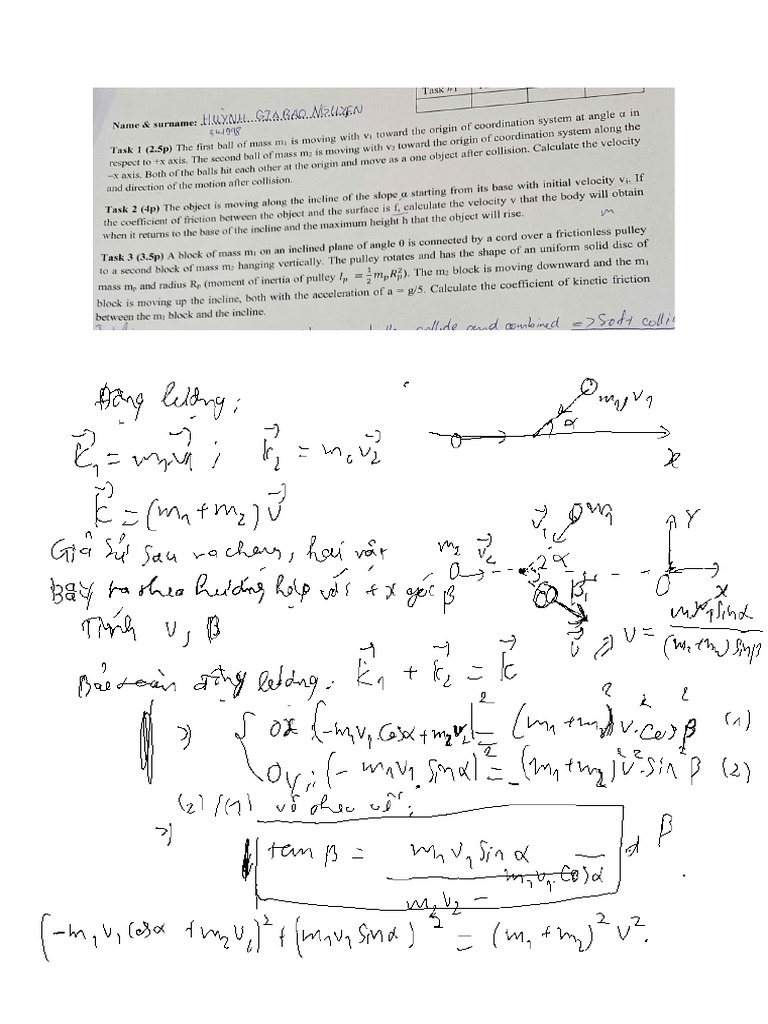 Task #1
Name & surname: HUỲNH GIA BAO NGUYEN
341998
Task 1 (2.5p) The first ball of mass m₁ is moving with v₁ toward the origin of coordination system at angle α in
respect to +x axis. The second ball of mass m₂ is moving with v₂ toward the origin of coordination system along the
–x axis. Both of the balls hit each other at the origin and move as a one object after collision. Calculate the velocity
and direction of the motion after collision.
Task 2 (4p) The object is moving along the incline of the slope α starting from its base with initial velocity vᵢ. If
the coefficient of friction between the object and the surface is f, calculate the velocity v that the body will obtain
when it returns to the base of the incline and the maximum height h that the object will rise.
m
Task 3 (3.5p) A block of mass m₁ on an inclined plane of angle θ is connected by a cord over a frictionless pulley
to a second block of mass m₂ hanging vertically. The pulley rotates and has the shape of an uniform solid disc of
mass mₚ and radius Rₚ (moment of inertia of pulley Iₚ = ½mₚRₚ²). The m₂ block is moving downward and the m₁
block is moving up the incline, both with the acceleration of a = g/5. Calculate the coefficient of kinetic friction
between the m₁ block and the incline.
collide and combined => Soft colli
Động lượng:
m₁, v₁
α
x
k₁ = m₁v₁ ; k₂ = m₂v₂
k = (m₁ + m₂) v
Giả sử sau va chạm, hai vật
m₂ v₂ v₁ m₁ α β v
Y
O x
bay ra theo hướng hợp với +x góc β
Tính v, β
=> v = m₁v₁ sinα / (m₁+m₂) sinβ
Bảo toàn động lượng: k₁ + k₂ = k
=> { Ox: (-m₁v₁ cosα + m₂v₂)² = (m₁ + m₂)² v² cos² β (1)
Oy: (- m₁v₁ sinα)² = (m₁ + m₂)² v² sin² β (2)
(2) / (1) vế theo vế:
=> tan β = m₁ v₁ sin α / m₂v₂ - m₁v₁ cosα => β
(-m₁v₁ cosα + m₂v₂)² + (m₁v₁ sinα)² = (m₁ + m₂)² v².